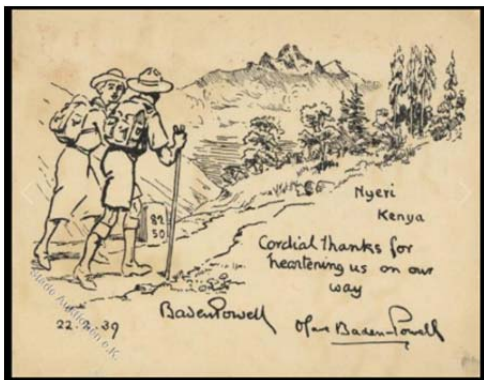 82
50
Nyeri
Kenya
Cordial thanks for
heartening us on our
way
Baden Powell
Olave Baden-Powell
22. 2. 39
Stade Auktionen e.K.